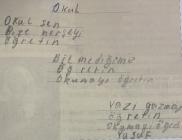 Okul
Okul sen
Bize herşeyi
Öğretin
Bilmediğimiz
Öğretin
Okumayı öğretin
Yazı yazmayı
Öğretin
Okumayı öğret
Yusuf